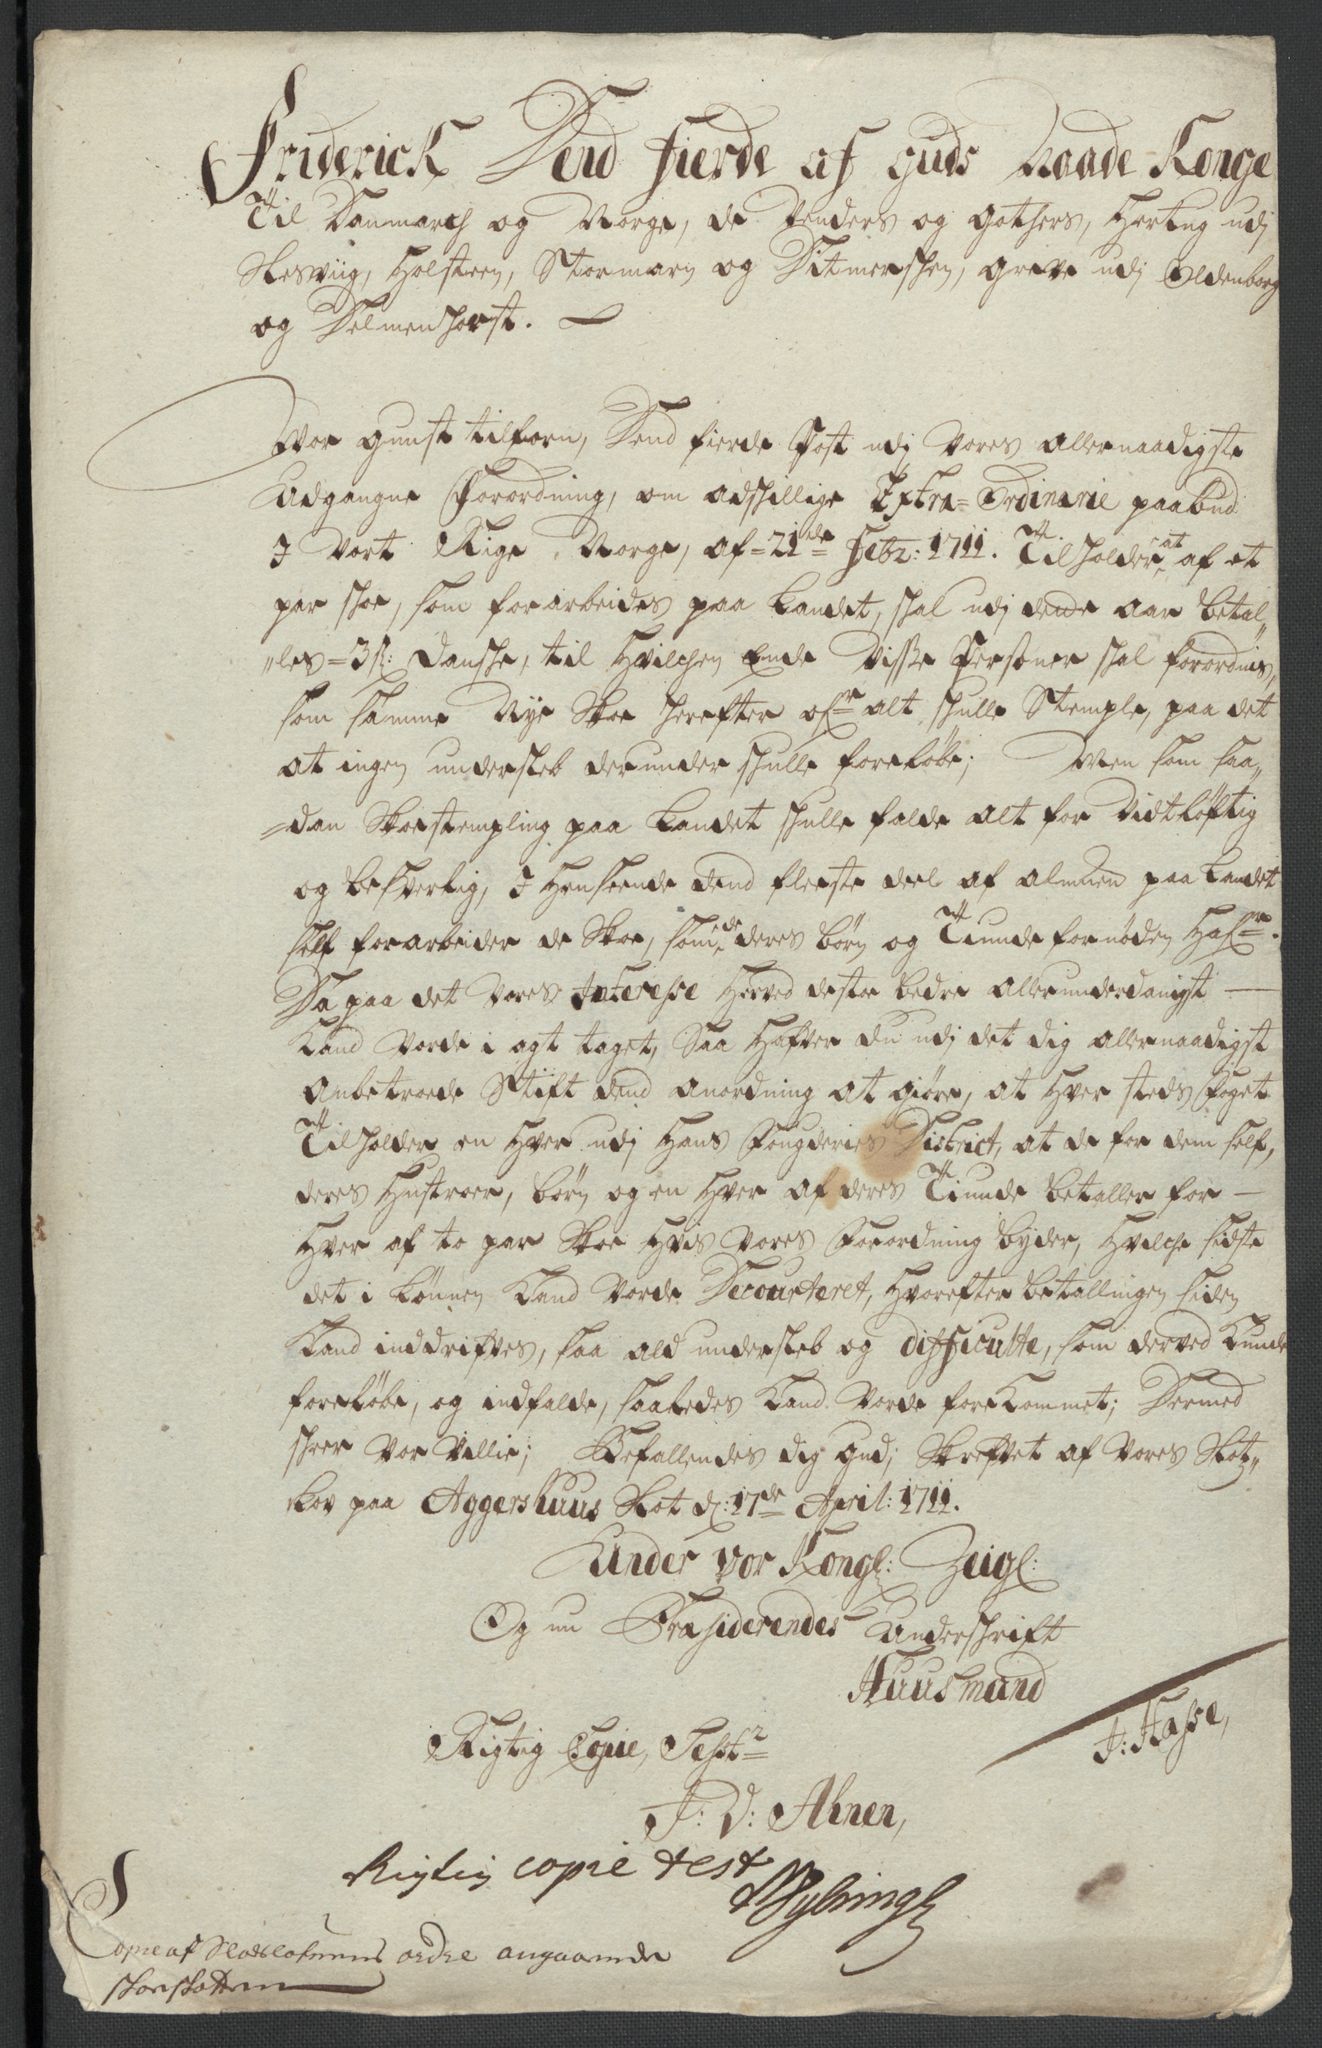 Friderick Dend fierde af Guds Naade Konge
Til Danmarch og Norge, de Venders og Gothers, Hertug udj
Slesviig, Holsteen, Stormarn og Ditmerschen, Greve udj Oldenborg
og Delmenhorst.
Vor gunst tilforn, Dend fierde Post udj Vores allernaadigste
Udgangne Forordning, om adschillige Extra-Ordinarie paabud
I Vort Rige Norge, af 21de Febr: 1711. Tilholder, at af et
par skoe, som forarbeides paa Landet, skal udj dende aar betal„
„les 3 s: Danske, til Hvilchen Ende Visse Persöner skal forordnis,
som samme Nye Skoe herefter ofr alt skulle Stemple, paa det
at ingen undersleb derunder skulle foreløbe; Men som saa„
dan Skoestempling paa Landet skulle falde alt for Vidtløftig
og besverlig, I Henseende dend fleeste deel af almuen paa Landet
self forarbeider de Skoe, som de deres börn og Tiunde fornöden Hafr.
Da paa det Vores Interesse Herved destoe bedre allerunderdanigst
Kand Vorde i agt taget, Saa Hafver du udj det dig allernaadigst
Anbetroede Stift dend anordning at giöre, at Hver steds foget
Tilholder en Hver udj Hans Fougderies District, at de for dem self,
deres Hustroer, börn og en Hver af deres Tiunde betaller for
Hver af to par Skoe Hvis Vores Forordning byder, Hvilche sidste
det i Lönnen Kand Vorde Decourteret, Hvorefter betallingen siden
Kand inddrifves, saa ald undersleb og difficulte, som derved Kunde
foreløbe, og indfalde, saaledes Kand Vorde forekommet; Dermed
skeer Vor Villie; Befallendes dig Gud; Skrefvet af Vores Slotz„
lov paa Aggershuus Slot d: 17de April: 1711.
Under Vor Kongl: Zeigl:
Og nu Præsiderendes Underschrift
Huusmand
J: Hasse,
Rigtig Copie, Testr
J: D: Ahnen,
Rigtig copie test
Copie af Slodslofvens ordre angaaende
skoeskatten